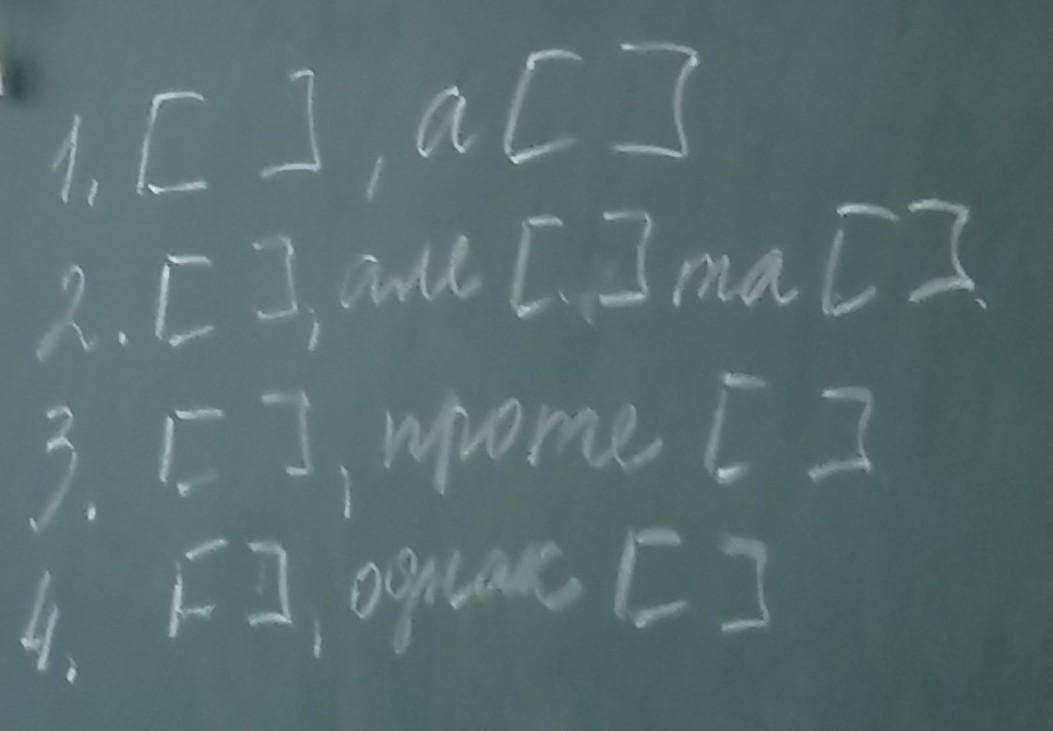 1. [ ], а [ ]
2. [ ], але [ ] та [ ].
3. [ ], проте [ ]
4. [ ], однак [ ]